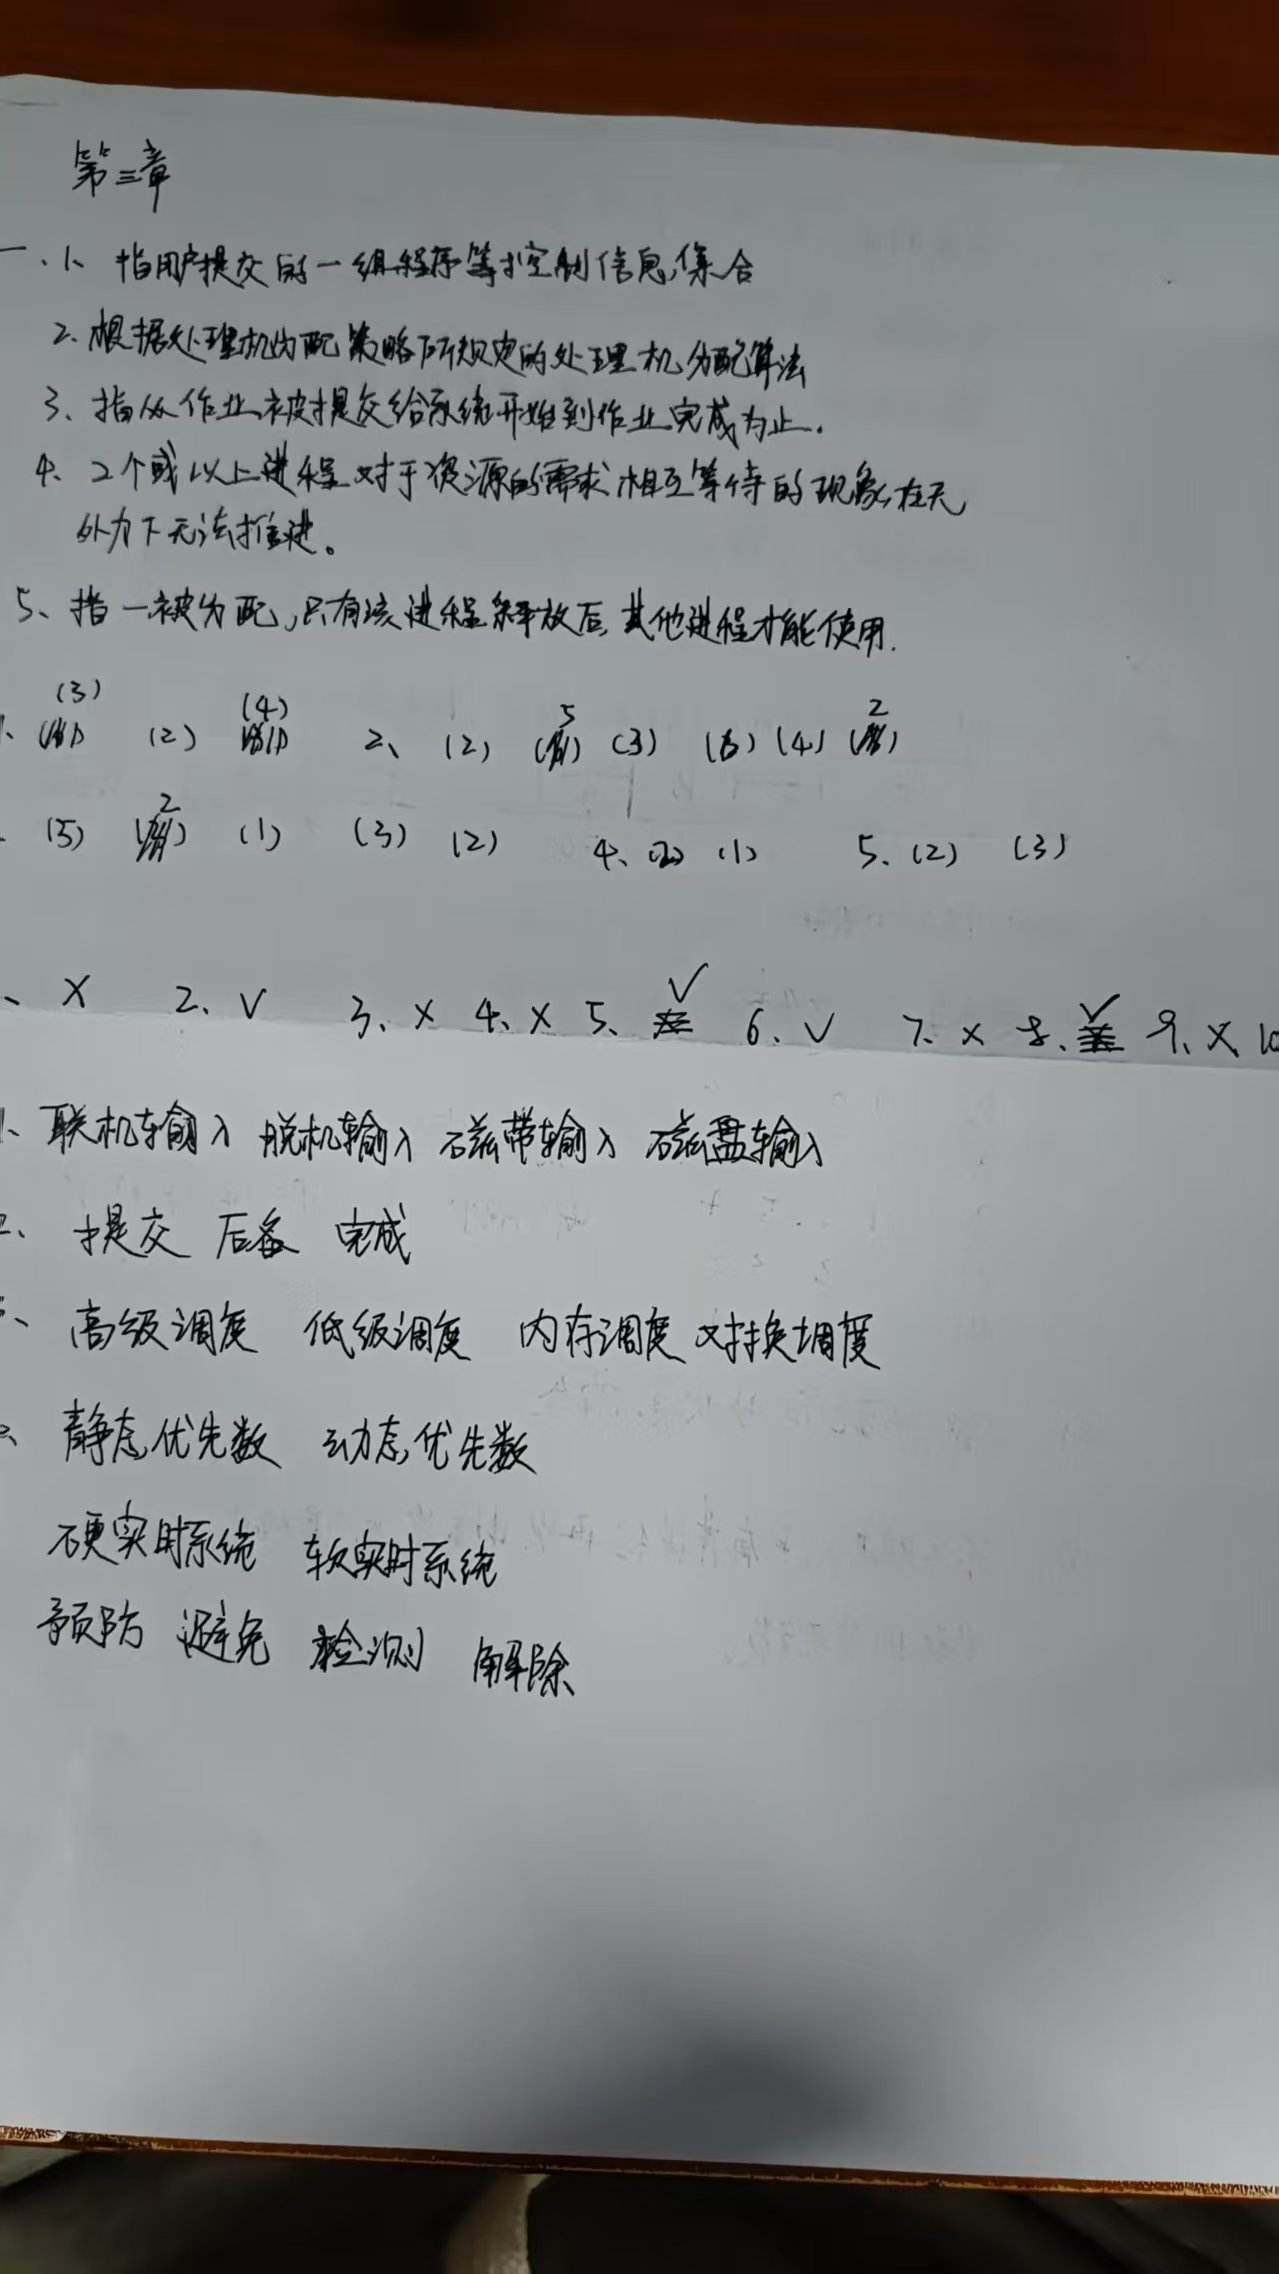 第三章
一.1、指用户提交的一组程序等控制信息集合
2、根据处理机分配策略所规定的处理机分配算法
3、指从作业被提交给系统开始到作业完成为止.
4、2个或以上进程对于资源的需求相互等待的现象,在无
外力下无法推进。
5、指一被分配,只有该进程释放后,其他进程才能使用.
(3) (2) (4) 2、(2) 5 (3) (6) (4) 2
(5) 2 (1) (3) (2) 4、(2) (1) 5.(2) (3)
、× 2、√ 3、× 4、× 5、√ 6、√ 7、× 8、√ 9、× 10
1、联机输入 脱机输入 磁带输入 磁盘输入
2、提交 后备 完成
、高级调度 低级调度 内存调度 对换调度
、静态优先数 动态优先数
硬实时系统 软实时系统
预防 避免 检测 解除